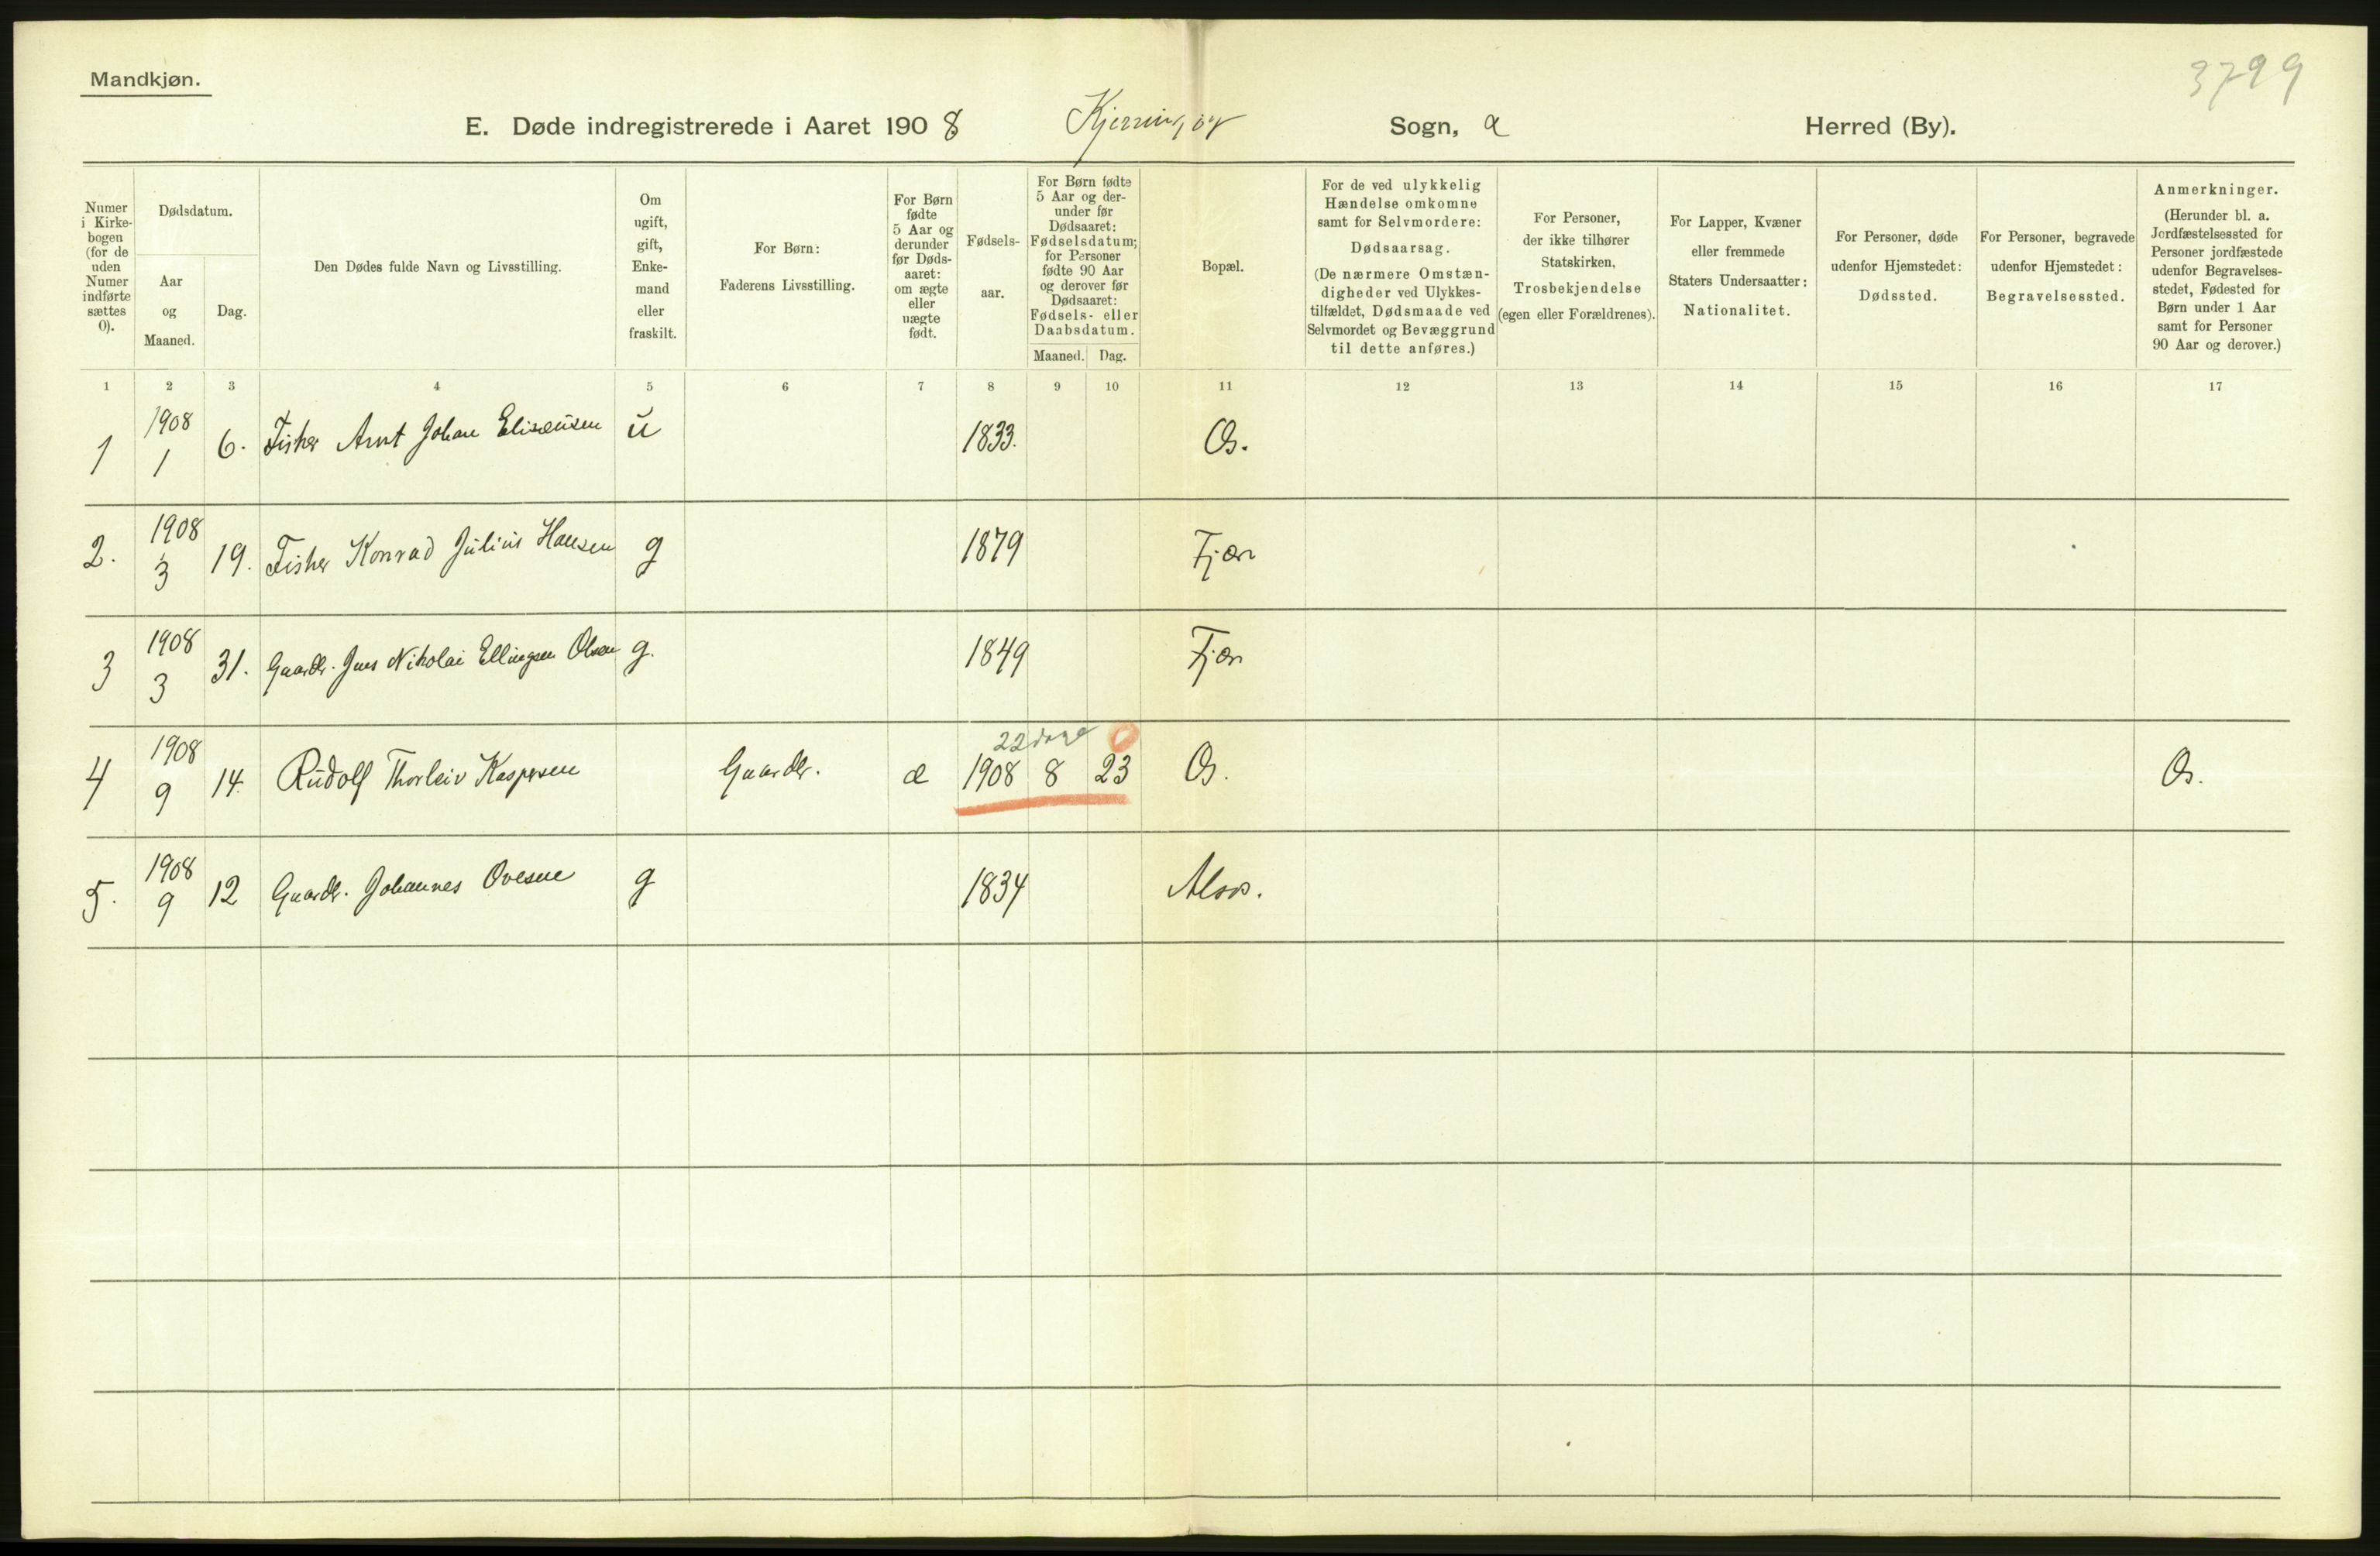 Mandkjøn.
3799
E. Døde indregistrerede i Aaret 1908 Kjerringøy Sogn, Herred (By).
Numer i Kirkebogen (for de uden Numer indførte sættes 0).
Dødsdatum.
Aar og Maaned.
Dag.
Den Dødes fulde Navn og Livsstilling.
Om ugift, gift, Enkemand eller fraskilt.
For Børn: Faderens Livsstilling.
For Børn fødte 5 Aar og derunder før Dødsaaret: om ægte eller uægte født.
Fødselsaar.
For Børn fødte 5 Aar og derunder før Dødsaaret: Fødselsdatum; for Personer fødte 90 Aar og derover før Dødsaaret: Fødsels- eller Daabsdatum.
Maaned. Dag.
Bopæl.
For de ved ulykkelig Hændelse omkomne samt for Selvmordere: Dødsaarsag. (De nærmere Omstændigheder ved Ulykkestilfældet, Dødsmaade ved Selvmordet og Bevæggrund til dette anføres.)
For Personer, der ikke tilhører Statskirken, Trosbekjendelse (egen eller Forældrenes).
For Lapper, Kvæner eller fremmede Staters Undersaatter: Nationalitet.
For Personer, døde udenfor Hjemstedet: Dødssted.
For Personer, begravede udenfor Hjemstedet: Begravelsessted.
Anmerkninger. (Herunder bl. a. Jordfæstelsessted for Personer jordfæstede udenfor Begravelsesstedet, Fødested for Børn under 1 Aar samt for Personer 90 Aar og derover.)
1 2 3 4 5 6 7 8 9 10 11 12 13 14 15 16 17
1 1908 1 6. Fisker Arnt Johan Eliseusen u 1833. Os.
2. 1908 3 19. Fisker Konrad Julius Hansen g 1879 Fjær
3 1908 3 31. Gaardr. Jens Nikolai Ellingsen Olsen g. 1849 Fjær
22 dage 0
4 1908 9 14. Rudolf Thorleiv Kaspersen Gaardr. æ 1908 8 23 Os. Os.
5. 1908 9 12 Gaardr. Johannes Ovesen g 1834 Alsos.